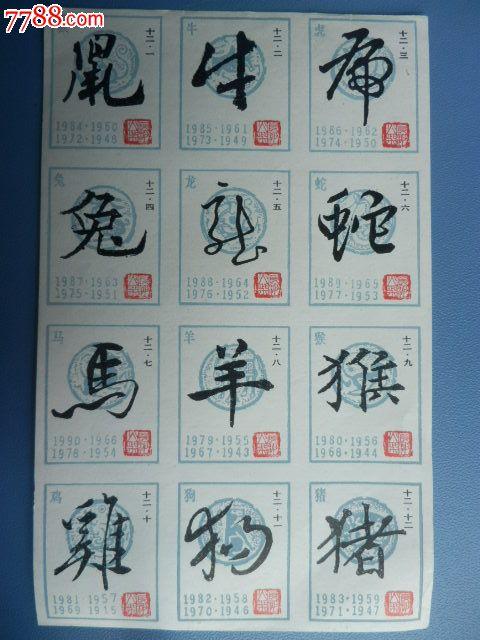 7788.com
十二·一
鼠
1984·1960
1972·1948
牛
十二·二
牛
1985·1961
1973·1949
虎
十二·三
虎
1986·1962
1974·1950
兔
十二·四
兔
1987·1963
1975·1951
龙
十二·五
龙
1988·1964
1976·1952
蛇
十二·六
蛇
1989·1965
1977·1953
马
十二·七
馬
1990·1966
1978·1954
羊
十二·八
羊
1979·1955
1967·1943
猴
十二·九
猴
1980·1956
1968·1944
鸡
十二·十
雞
1981·1957
1969
狗
十二·十一
狗
1982·1958
1970·1946
猪
十二·十二
猪
1983·1959
1971·1947